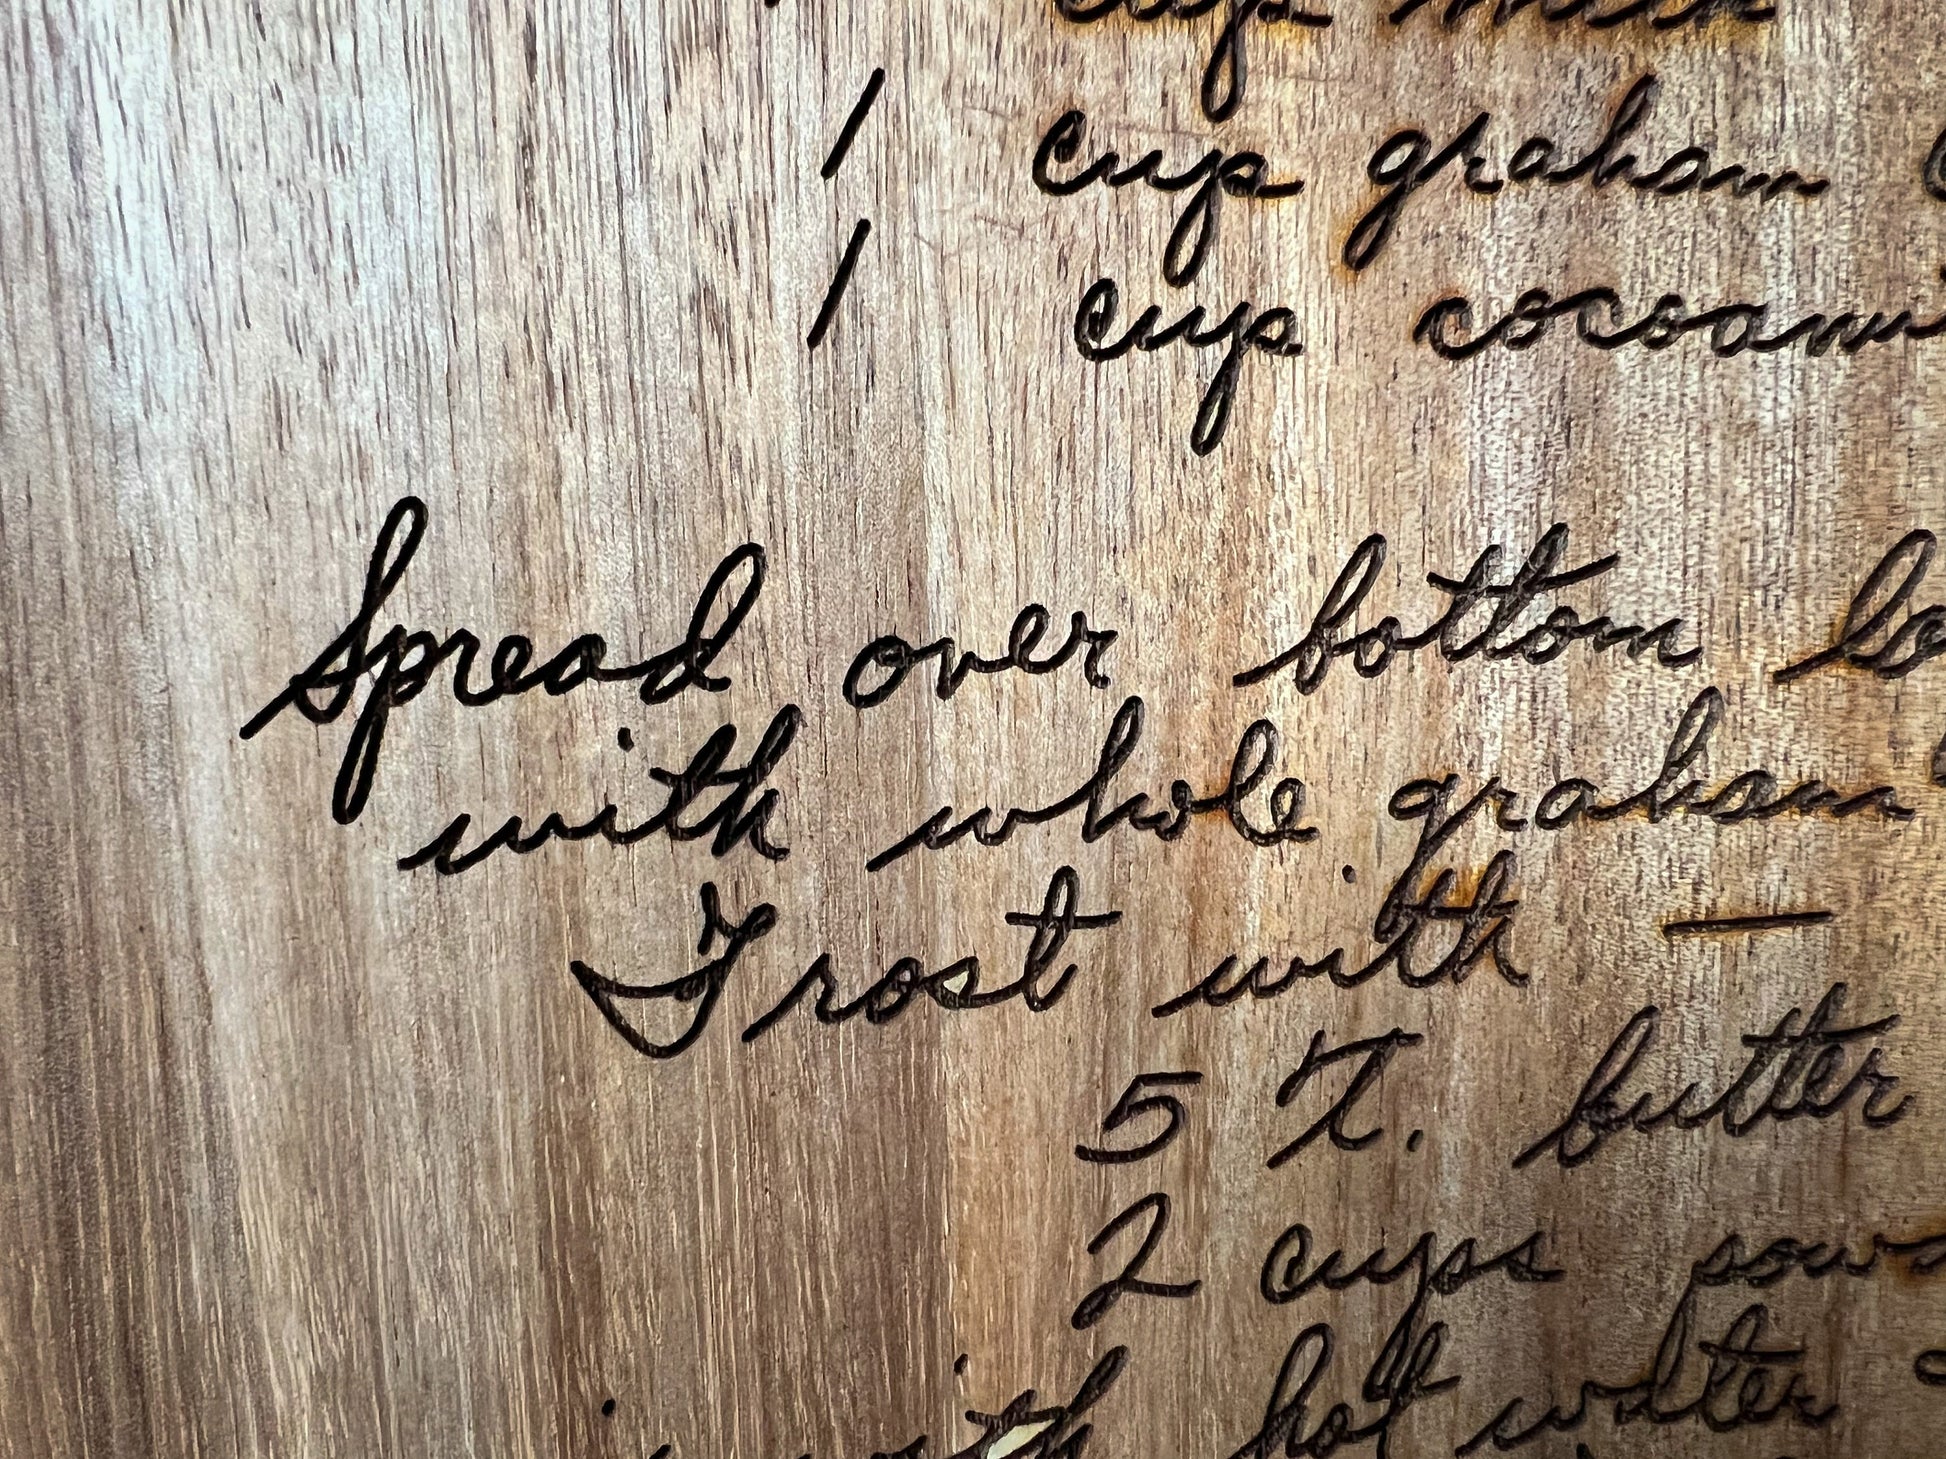 cup milk
1 cup graham
1 cup cocoanu
Spread over bottom
with whole graham
Frost with —
5 T. butter
2 cups pow
with hot water